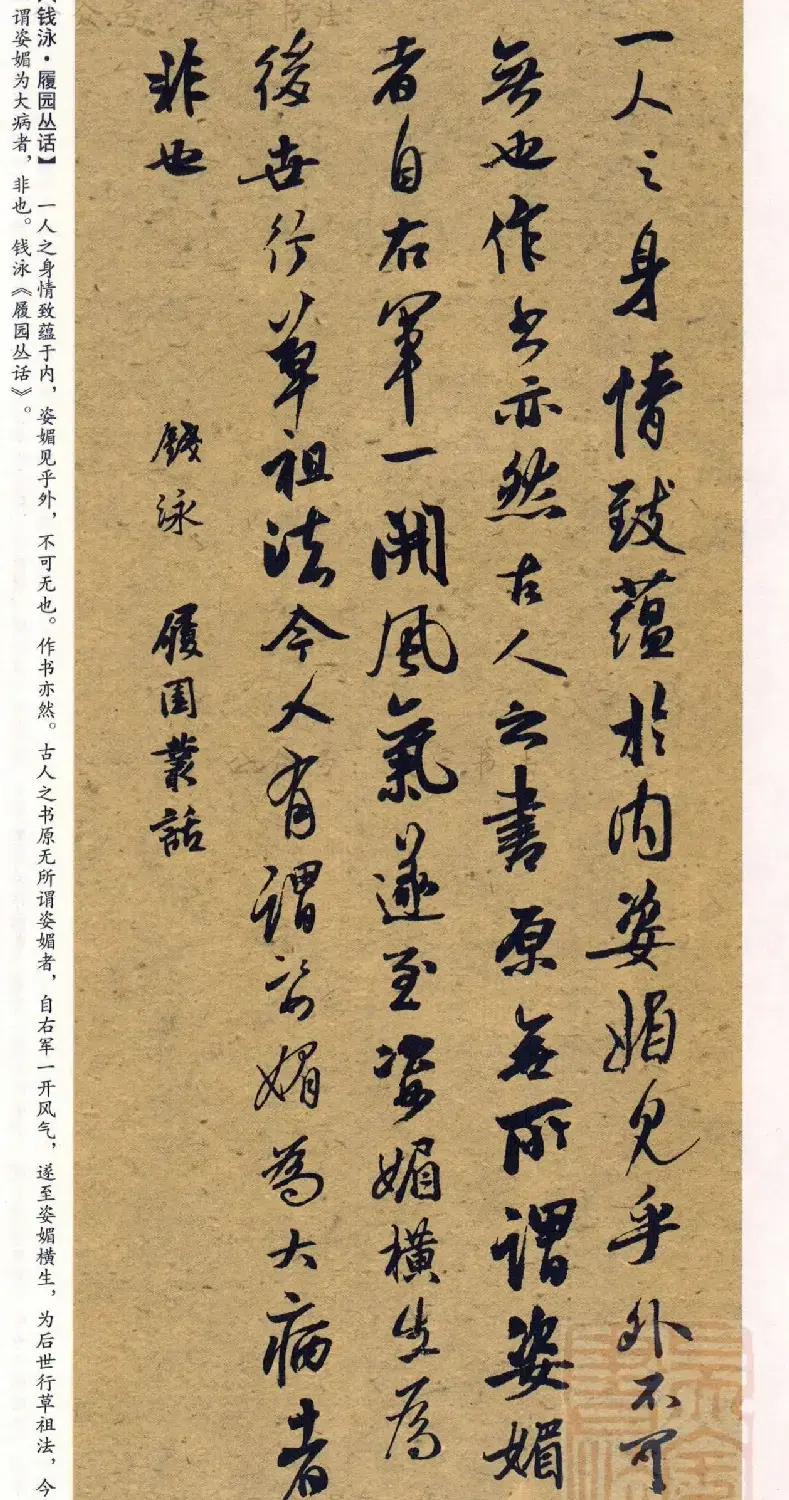 一人之身情致蕴於内姿媚見乎外不可
無也作书亦然古人之書原無所謂姿媚
者自右軍一開風氣遂至姿媚橫生為
後世行草祖法今人有謂姿媚為大病者
非也
錢泳 履園叢話
钱泳·履园丛话】 一人之身情致蕴于内，姿媚见乎外，不可无也。作书亦然。古人之书原无所谓姿媚者，自右军一开风气，遂至姿媚横生，为后世行草祖法，今
谓姿媚为大病者，非也。钱泳《履园丛话》。